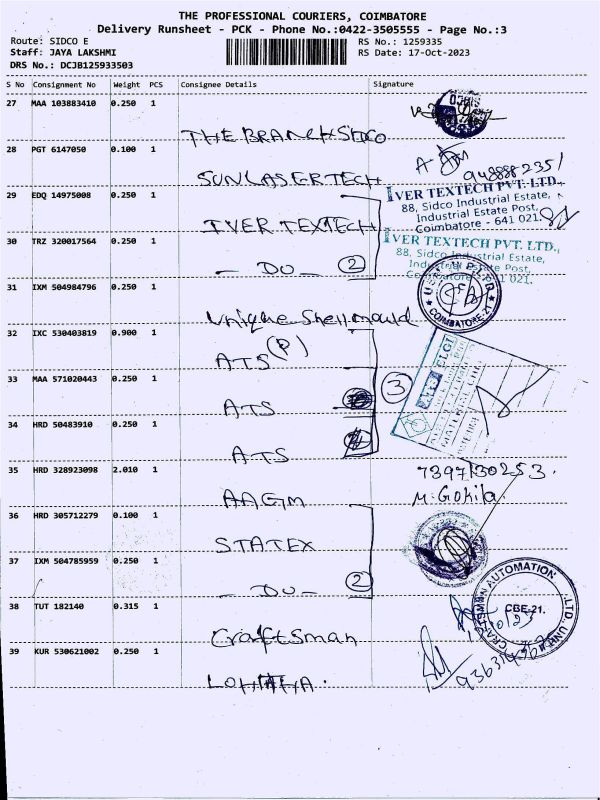 THE PROFESSIONAL COURIERS, COIMBATORE
Delivery Runsheet - PCK - Phone No.:0422-3505555 - Page No.:3
Route: SIDCO E
RS No.: 1259335
Staff: JAYA LAKSHMI
RS Date: 17-Oct-2023
DRS No.: DCJB125933503
S No Consignment No Weight PCS Consignee Details Signature
27 MAA 103883410 0.250 1
THE BRANCH SIDCO
28 PGT 6147050 0.100 1
SUNLASERTECH
29 EDQ 14975008 0.250 1
IVER TEXTECH
IVER TEXTECH PVT. LTD.,
88, Sidco Industrial Estate,
Industrial Estate Post,
Coimbatore - 641 021.
30 TRZ 320017564 0.250 1
- DO - 2
IVER TEXTECH PVT. LTD.,
88, Sidco Industrial Estate,
Industrial Estate Post,
Coimbatore - 641 021.
31 IXM 504984796 0.250 1
Unique Shellmould
COIMBATORE-21
32 IXC 530403819 0.900 1
ATS (P)
33 MAA 571020443 0.250 1
ATS
3
34 HRD 50483910 0.250 1
ATS
35 HRD 328923098 2.010 1
AAGM
7397130253.
M. Gokila.
36 HRD 305712279 0.100 1
STATEX
37 IXM 504785959 0.250 1
- DO - 2
38 TUT 182140 0.315 1
Craftsman
CRAFTSMAN AUTOMATION LTD. UNIT
CBE-21.
39 KUR 530621002 0.250 1
LOHITHA.